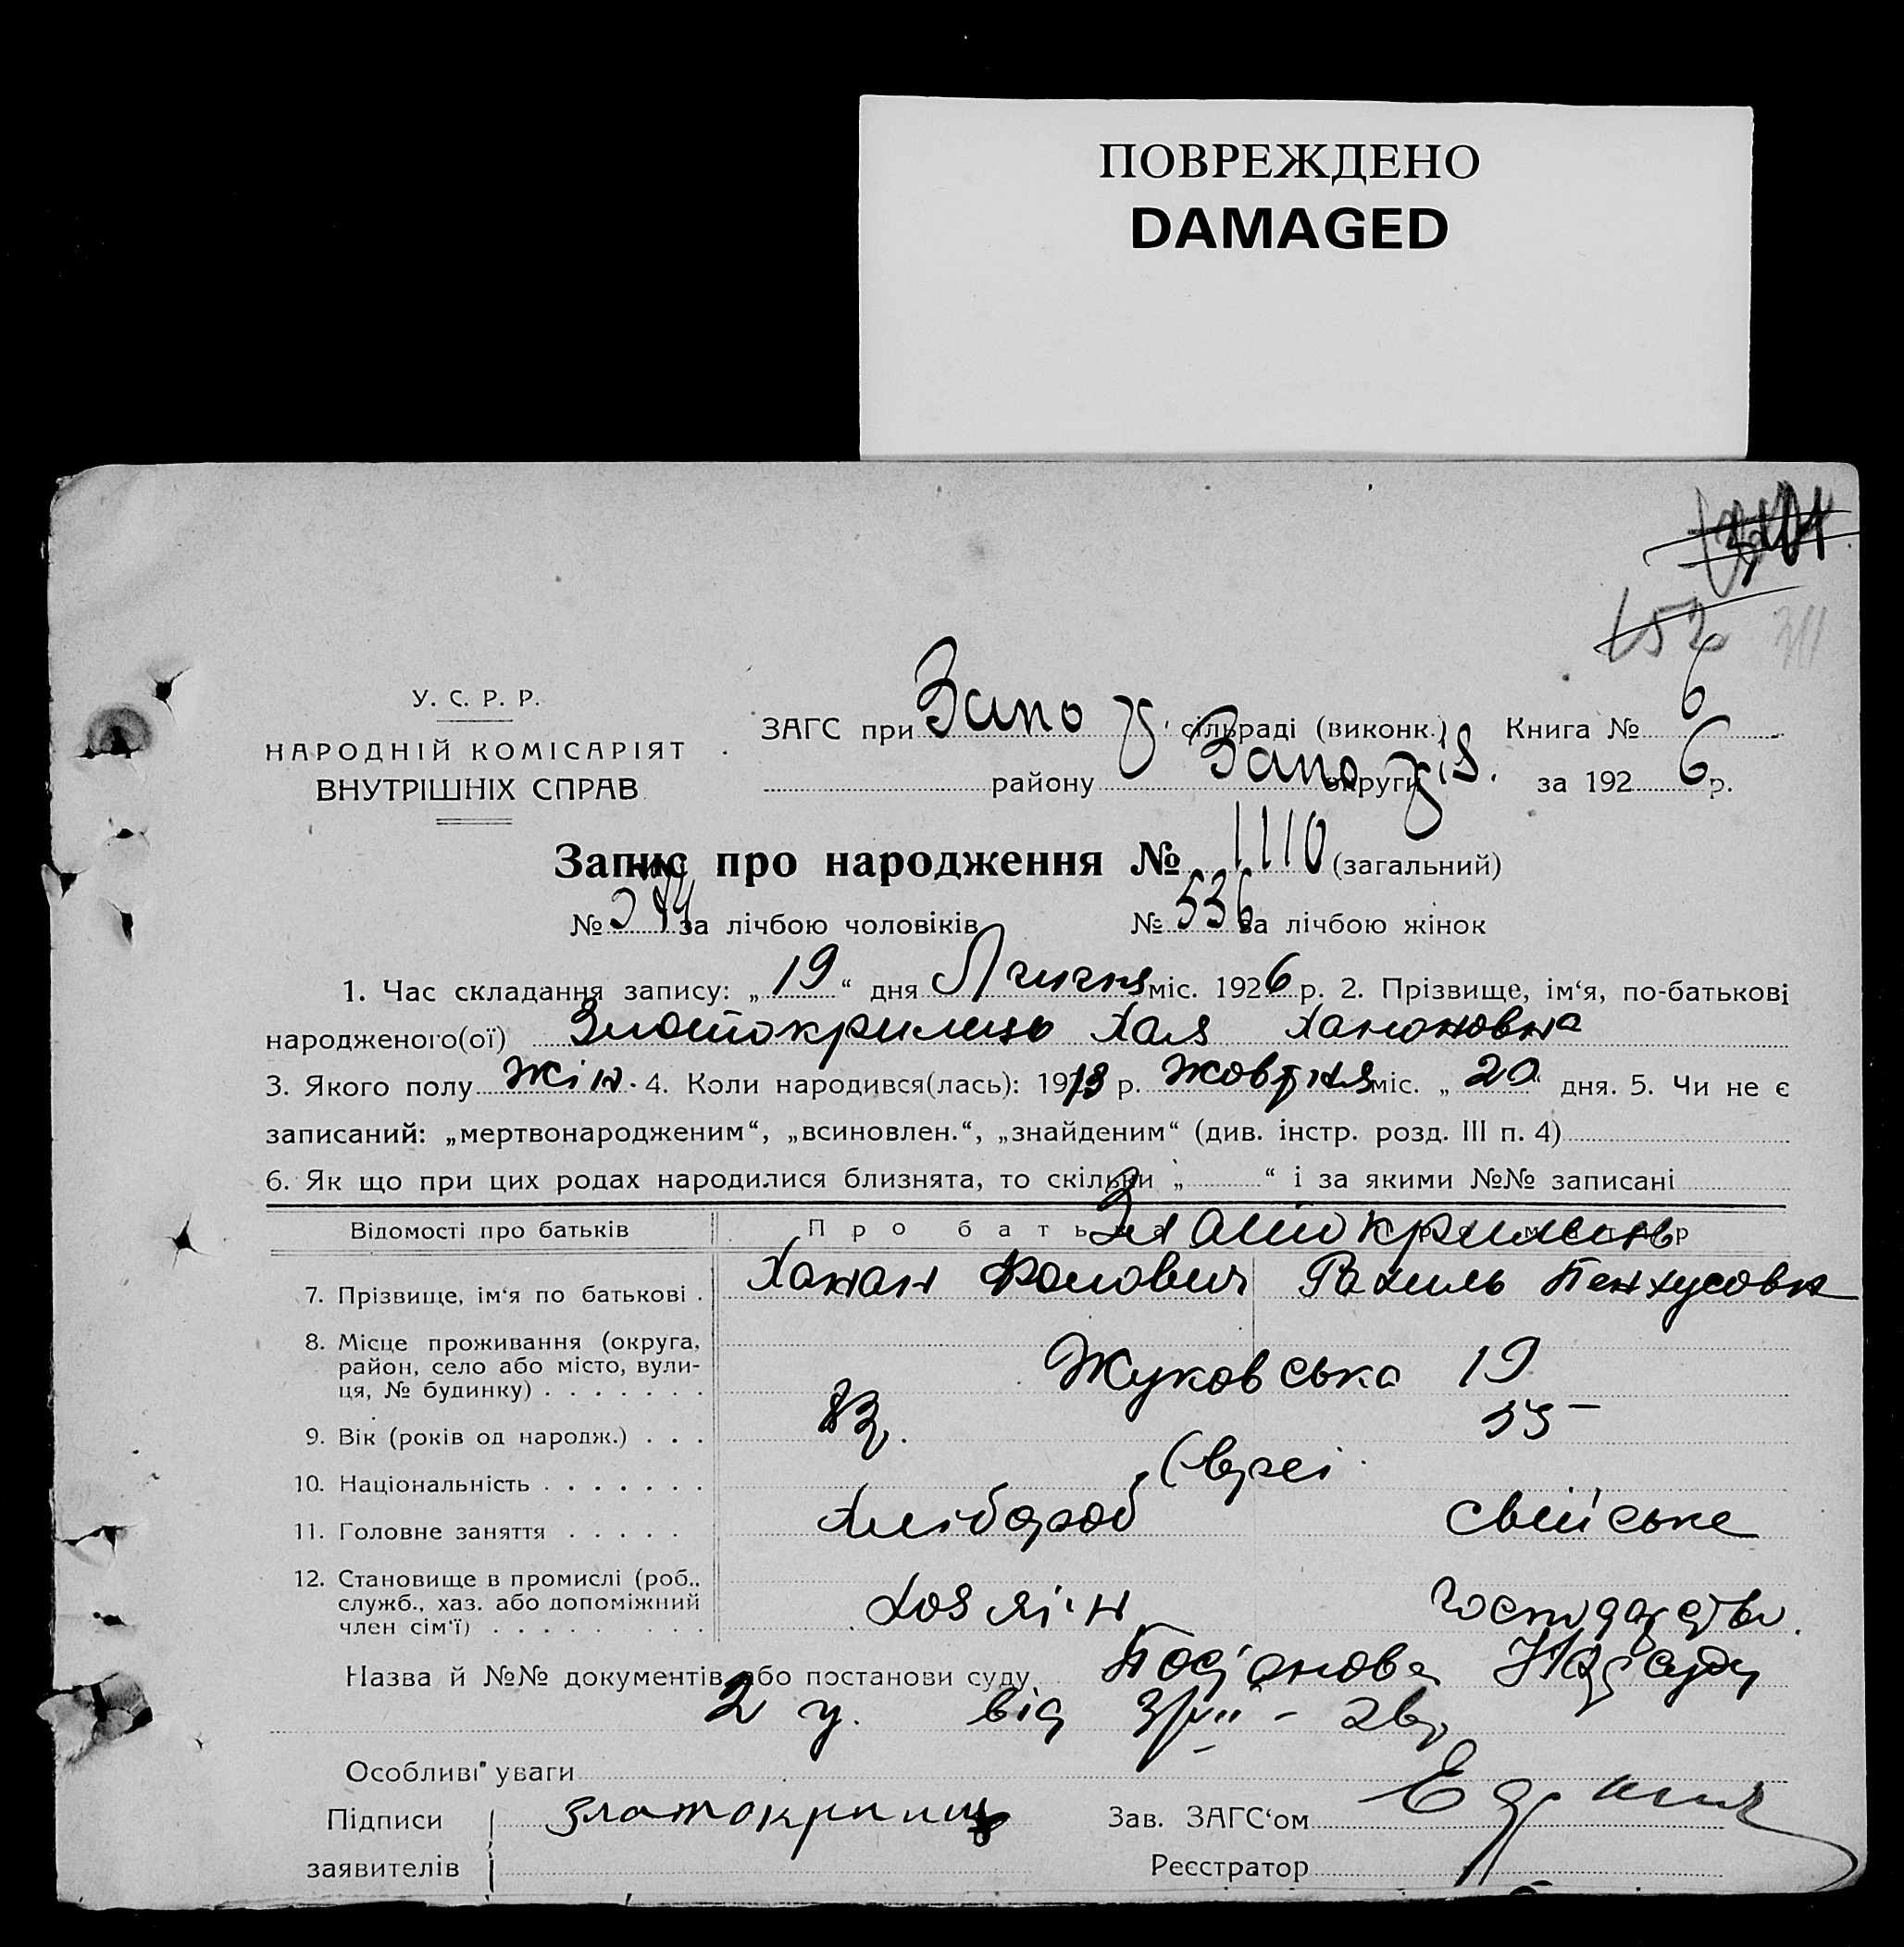 ПОВРЕЖДЕНО
DAMAGED
152
У. С. Р. Р.
НАРОДНІЙ КОМІСАРІЯТ
ВНУТРІШНІХ СПРАВ
ЗАГС при Запо сільраді (виконк.) Книга № 6
району Запо округи за 1926 р.
Запис про народження № 1110 (загальний)
№ за лічбою чоловіків № 536 за лічбою жінок
1. Час складання запису: „19“ дня Липня міс. 1926 р. 2. Прізвище, ім‘я, по-батькові
народженого(ої) Златокрилець Хая Хановна
3. Якого полу жін. 4. Коли народився(лась): 1913 р. жовтня міс. „20“ дня. 5. Чи не є
записаний: „мертвонародженим“, „всиновлен.“, „знайденим“ (див. інстр. розд. III п. 4)
6. Як що при цих родах народилися близнята, то скільки „ “ і за якими №№ записані
Відомості про батьків Про батька Златокрилець
7. Прізвище, ім‘я по батькові . Ханан Рахиль
8. Місце проживання (округа,
район, село або місто, вули-
ця, № будинку) . . . . . . . Жуковська 19
9. Вік (років од народж.) . . . 55
10. Національність . . . . . . . Євреї
11. Головне заняття . . . . . Хлібороб свійське
12. Становище в промислі (роб..
служб., хаз. або допоміжний
член сім‘ї) . . . . . . . . . хозяїн господарство
Назва й №№ документів або постанови суду Постанова Нарсуду
2 у. від
Особливі уваги
Підписи Златокрилец Зав. ЗАГС‘ом
заявителів Реєстратор